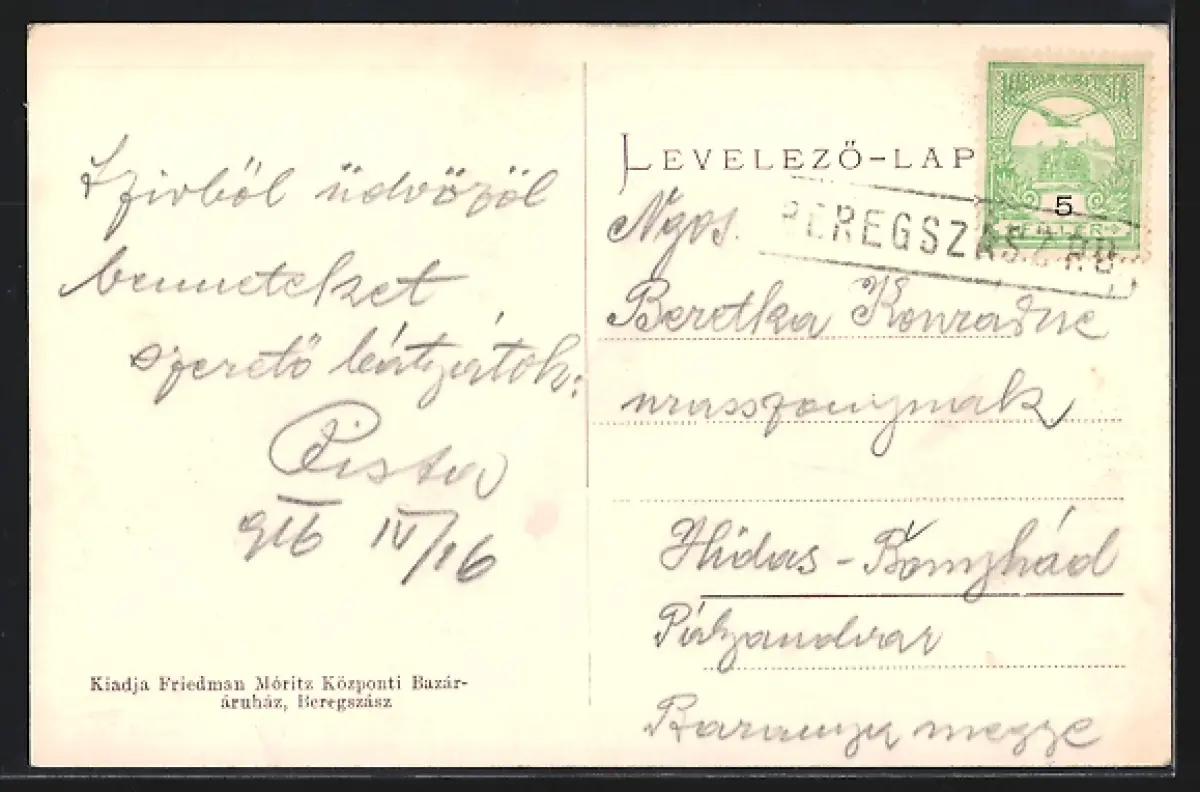 Szivből üdvözöl
benneteket
szerető bátyátok:
Pista
916 IV/16
Kiadja Friedman Móritz Központi Bazár-
áruház, Beregszász
LEVELEZŐ-LAP
MAGYAR KIR. POSTA
5
FILLÉR
BEREGSZÁSZ P.U.
Ngos.
Beretka Konrádne
urasszonynak
Hidas-Bonyhád
Pályaudvar
Baranya megye